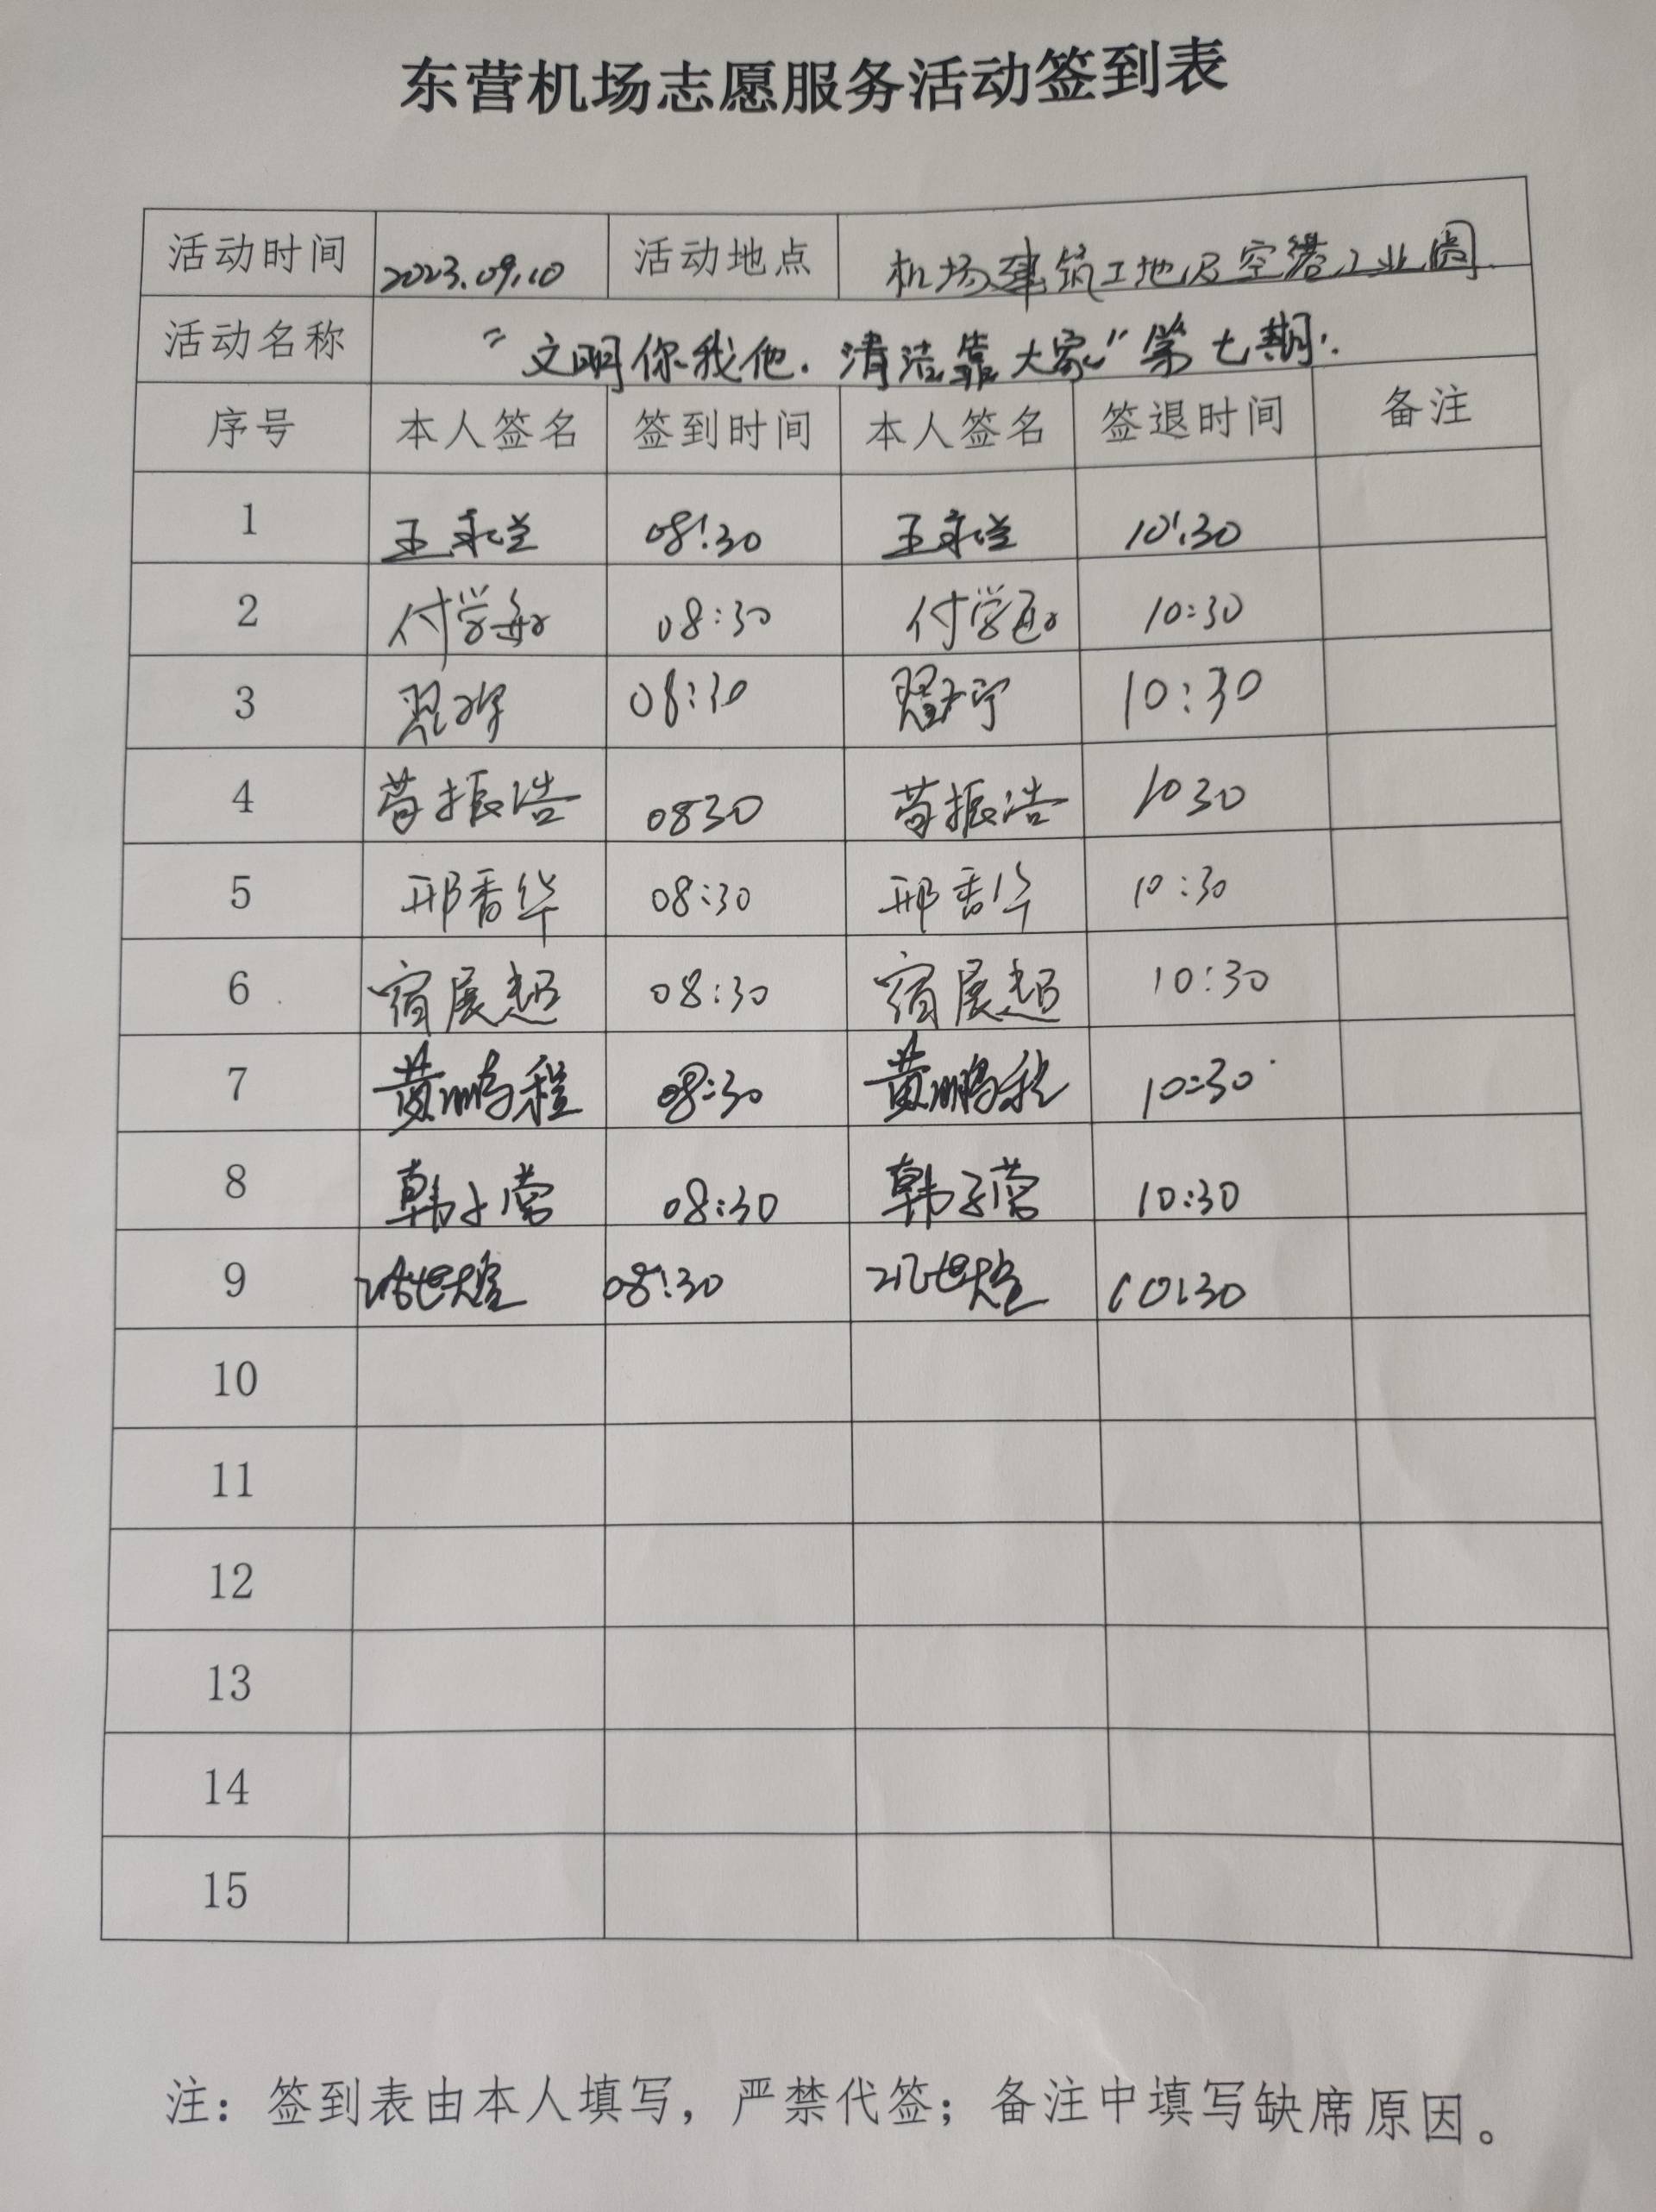 东营机场志愿服务活动签到表
活动时间 2023.09.10 活动地点 机场建筑工地及空港工业园
活动名称 “文明你我他.清洁靠大家”第七期.
序号 本人签名 签到时间 本人签名 签退时间 备注
1 王永堂 08:30 王永堂 10:30
2 付学敏 08:30 付学敏 10:30
3 08:30 10:30
4 苟振浩 0830 苟振浩 1030
5 邢香华 08:30 邢香华 10:30
6 宿展超 08:30 宿展超 10:30
7 黄鹏程 08:30 黄鹏程 10:30
8 韩子营 08:30 韩子营 10:30
9 08:30 10:30
10
11
12
13
14
15
注：签到表由本人填写，严禁代签；备注中填写缺席原因。